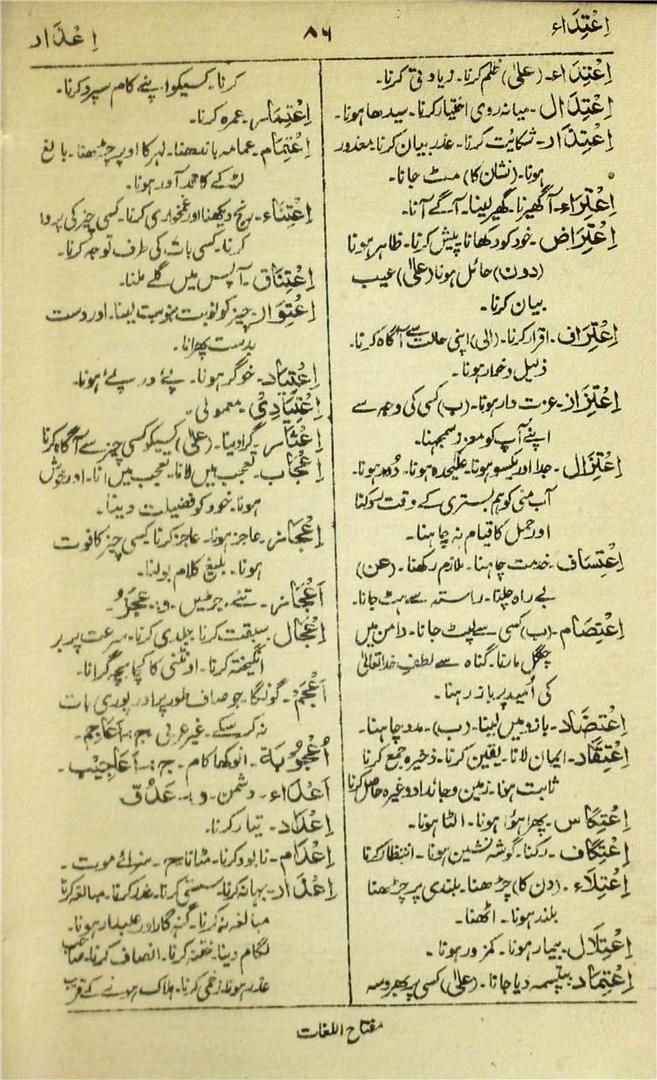 اِعْتِدَاء
۸۶
اِعْذَار
اِعْتِدَاء۔ (علیٰ) ظلم کرنا۔ زیادتی کرنا۔
اِعْتِدَال۔ میانہ روی اختیار کرنا۔ سیدھا ہونا۔
اِعْتِذَار۔ شکایت کرنا۔ عذر بیان کرنا۔ معذور
ہونا۔ (نشان کا) مٹ جانا۔
اِعْتِرَاء۔ آگھیرنا۔ گھیر لینا۔ آگے آنا۔
اِعْتِرَاض۔ خود کو دکھانا پیش کرنا۔ ظاہر ہونا
(دون) حائل ہونا (علیٰ) عیب
بیان کرنا۔
اِعْتِرَاف۔ اقرار کرنا۔ (الی) اپنی حالت سے آگاہ کرنا۔
ذلیل و خوار ہونا۔
اِعْتِزَاز۔ عزت دار ہونا۔ (ب) کسی کی وجہ سے
اپنے آپ کو معزز سمجھنا۔
اِعْتِزَال۔ جدا اور یکسو ہونا۔ علیحدہ ہونا۔ دور ہونا۔
آب منی کو ہم بستری کے وقت روکنا
اور حمل کا قیام نہ چاہنا۔
اِعْتِسَاف۔ خدمت چاہنا۔ ملازم رکھنا۔ (عن)
بے راہ چلنا۔ راستہ سے ہٹ جانا۔
اِعْتِصَام۔ (ب) کسی سے لپٹ جانا۔ دامن میں
چنگل مارنا۔ گناہ سے لطف خدا تعالیٰ
کی اُمید پر باز رہنا۔
اِعْتِضَاد۔ بازو میں لینا۔ (ب)۔ مدد چاہنا۔
اِعْتِقَاد۔ ایمان لانا۔ یقین کرنا۔ ذخیرہ جمع کرنا
ثابت ہونا۔ زمین و جائداد وغیرہ حاصل کرنا
اِعْتِكَاس۔ پھرا ہوا ہونا۔ الٹا ہونا۔
اِعْتِكَاف۔ رکنا۔ گوشہ نشین ہونا۔ انتظار کرنا
اِعْتِلَاء۔ (دن کا) چڑھنا۔ بلندی پر چڑھنا
بلند ہونا۔ اٹھنا۔
اِعْتِلَال۔ بیمار ہونا۔ کمزور ہونا۔
اِعْتِمَاد۔ بپتسمہ دیا جانا۔ (علیٰ) کسی پر بھروسہ
کرنا۔ کسیکو اپنے کام سپرد کرنا۔
اِعْتِمَار۔ عمرہ کرنا۔
اِعْتِمَام۔ عمامہ باندھنا۔ لہر کا اوپر چڑھنا۔ بالغ
لڑکے کا قد آور ہونا۔
اِعْتِنَاء۔ رنج دیکھنا اور غمخواری کرنا۔ کسی چیز کی پروا
کرنا۔ کسی بات کی طرف توجہ کرنا۔
اِعْتِنَاق۔ آپس میں گلے ملنا۔
اِعْتِوَار۔ چیز کو نوبت بنوبت لینا۔ اور دست
بدست پھرانا۔
اِعْتِيَاد۔ خوگر ہونا۔ پے در پے ہونا۔
اِعْتِيَادِیْ۔ معمولی۔
اِعْثَار۔ گرا دینا۔ (علیٰ) کسیکو کسی چیز سے آگاہ کرنا
اِعْجَاب۔ تعجب میں لانا۔ تعجب میں آنا۔ اور خوش
ہونا۔ خود کو فضیلت دینا۔
اِعْجَاز۔ عاجز ہونا۔ عاجز کرنا کسی چیز کا فوت
ہونا۔ بلیغ کلام بولنا۔
اَعْجَاز۔ تنے، جڑیں۔ و: عَجَزٌ۔
اِعْجَال۔ سبقت کرنا۔ جلدی کرنا۔ سرعت پر بر
انگیختہ کرنا۔ اونٹنی کا کچا بچہ گرانا۔
اَعْجَم۔ گونگا۔ جو صاف طور پر اور پوری بات
نہ کر سکے۔ غیر عربی۔ ج: اَعَاجِم۔
اُعْجُوْبَة۔ انوکھا کام۔ ج: اَعَاجِيْب۔
اَعْدَاء۔ دشمن۔ و: عَدُوّ
اِعْدَاد۔ تیار کرنا۔
اِعْدَام۔ نابود کرنا۔ مٹانا ج۔ سزائے موت۔
اِعْذَار۔ بہانہ کرنا۔ سستی کرنا۔ عذر کرنا۔ مبالغہ کرنا
مبالغہ نہ کرنا۔ گنہ گار اور عیبدار ہونا۔
لگام دینا۔ ختنہ کرنا۔ انصاف کرنا۔ صاحب
عذر ہونا۔ زخمی کرنا۔ ہلاک ہونے کے قریب
مفتاح اللغات